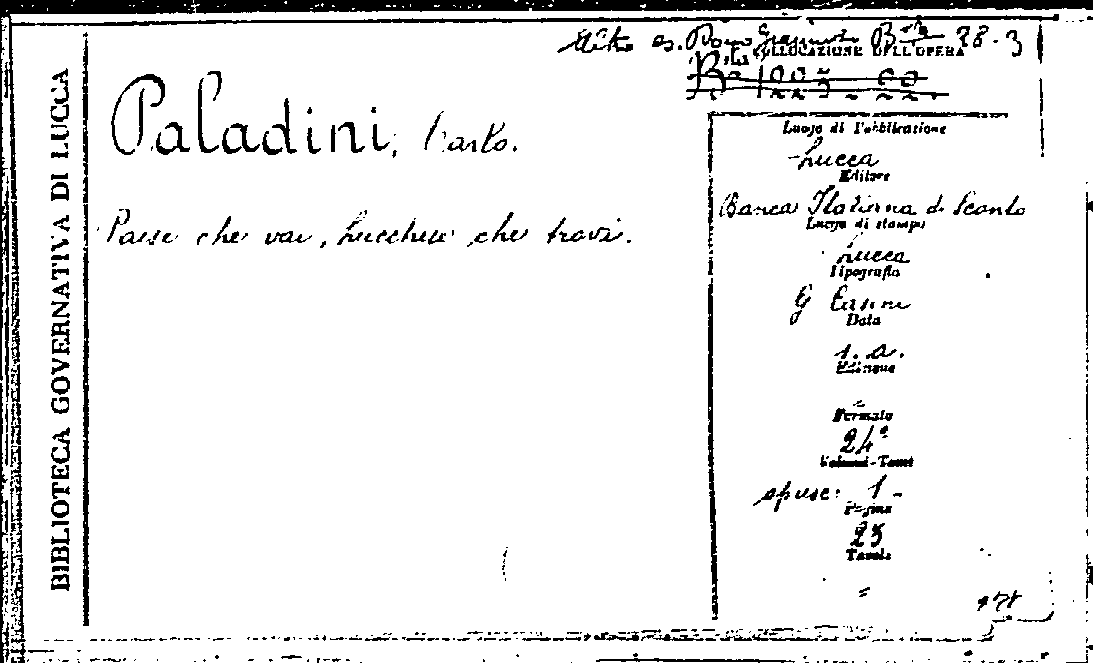 BIBLIOTECA GOVERNATIVA DI LUCCA
COLLOCAZIONE DELL'OPERA
28.3
Paladini, Carlo.
Paese che vai, Lucchese che trovi.
Luogo di Pubblicazione
Lucca
Editore
Banca Italiana di Sconto
Luogo di stampa
Lucca
Tipografia
G
Data
s.a.
Edizione
=
Formato
24°
Volumi-Tomi
opusc: 1 -
Pagine
25
Tavole
=